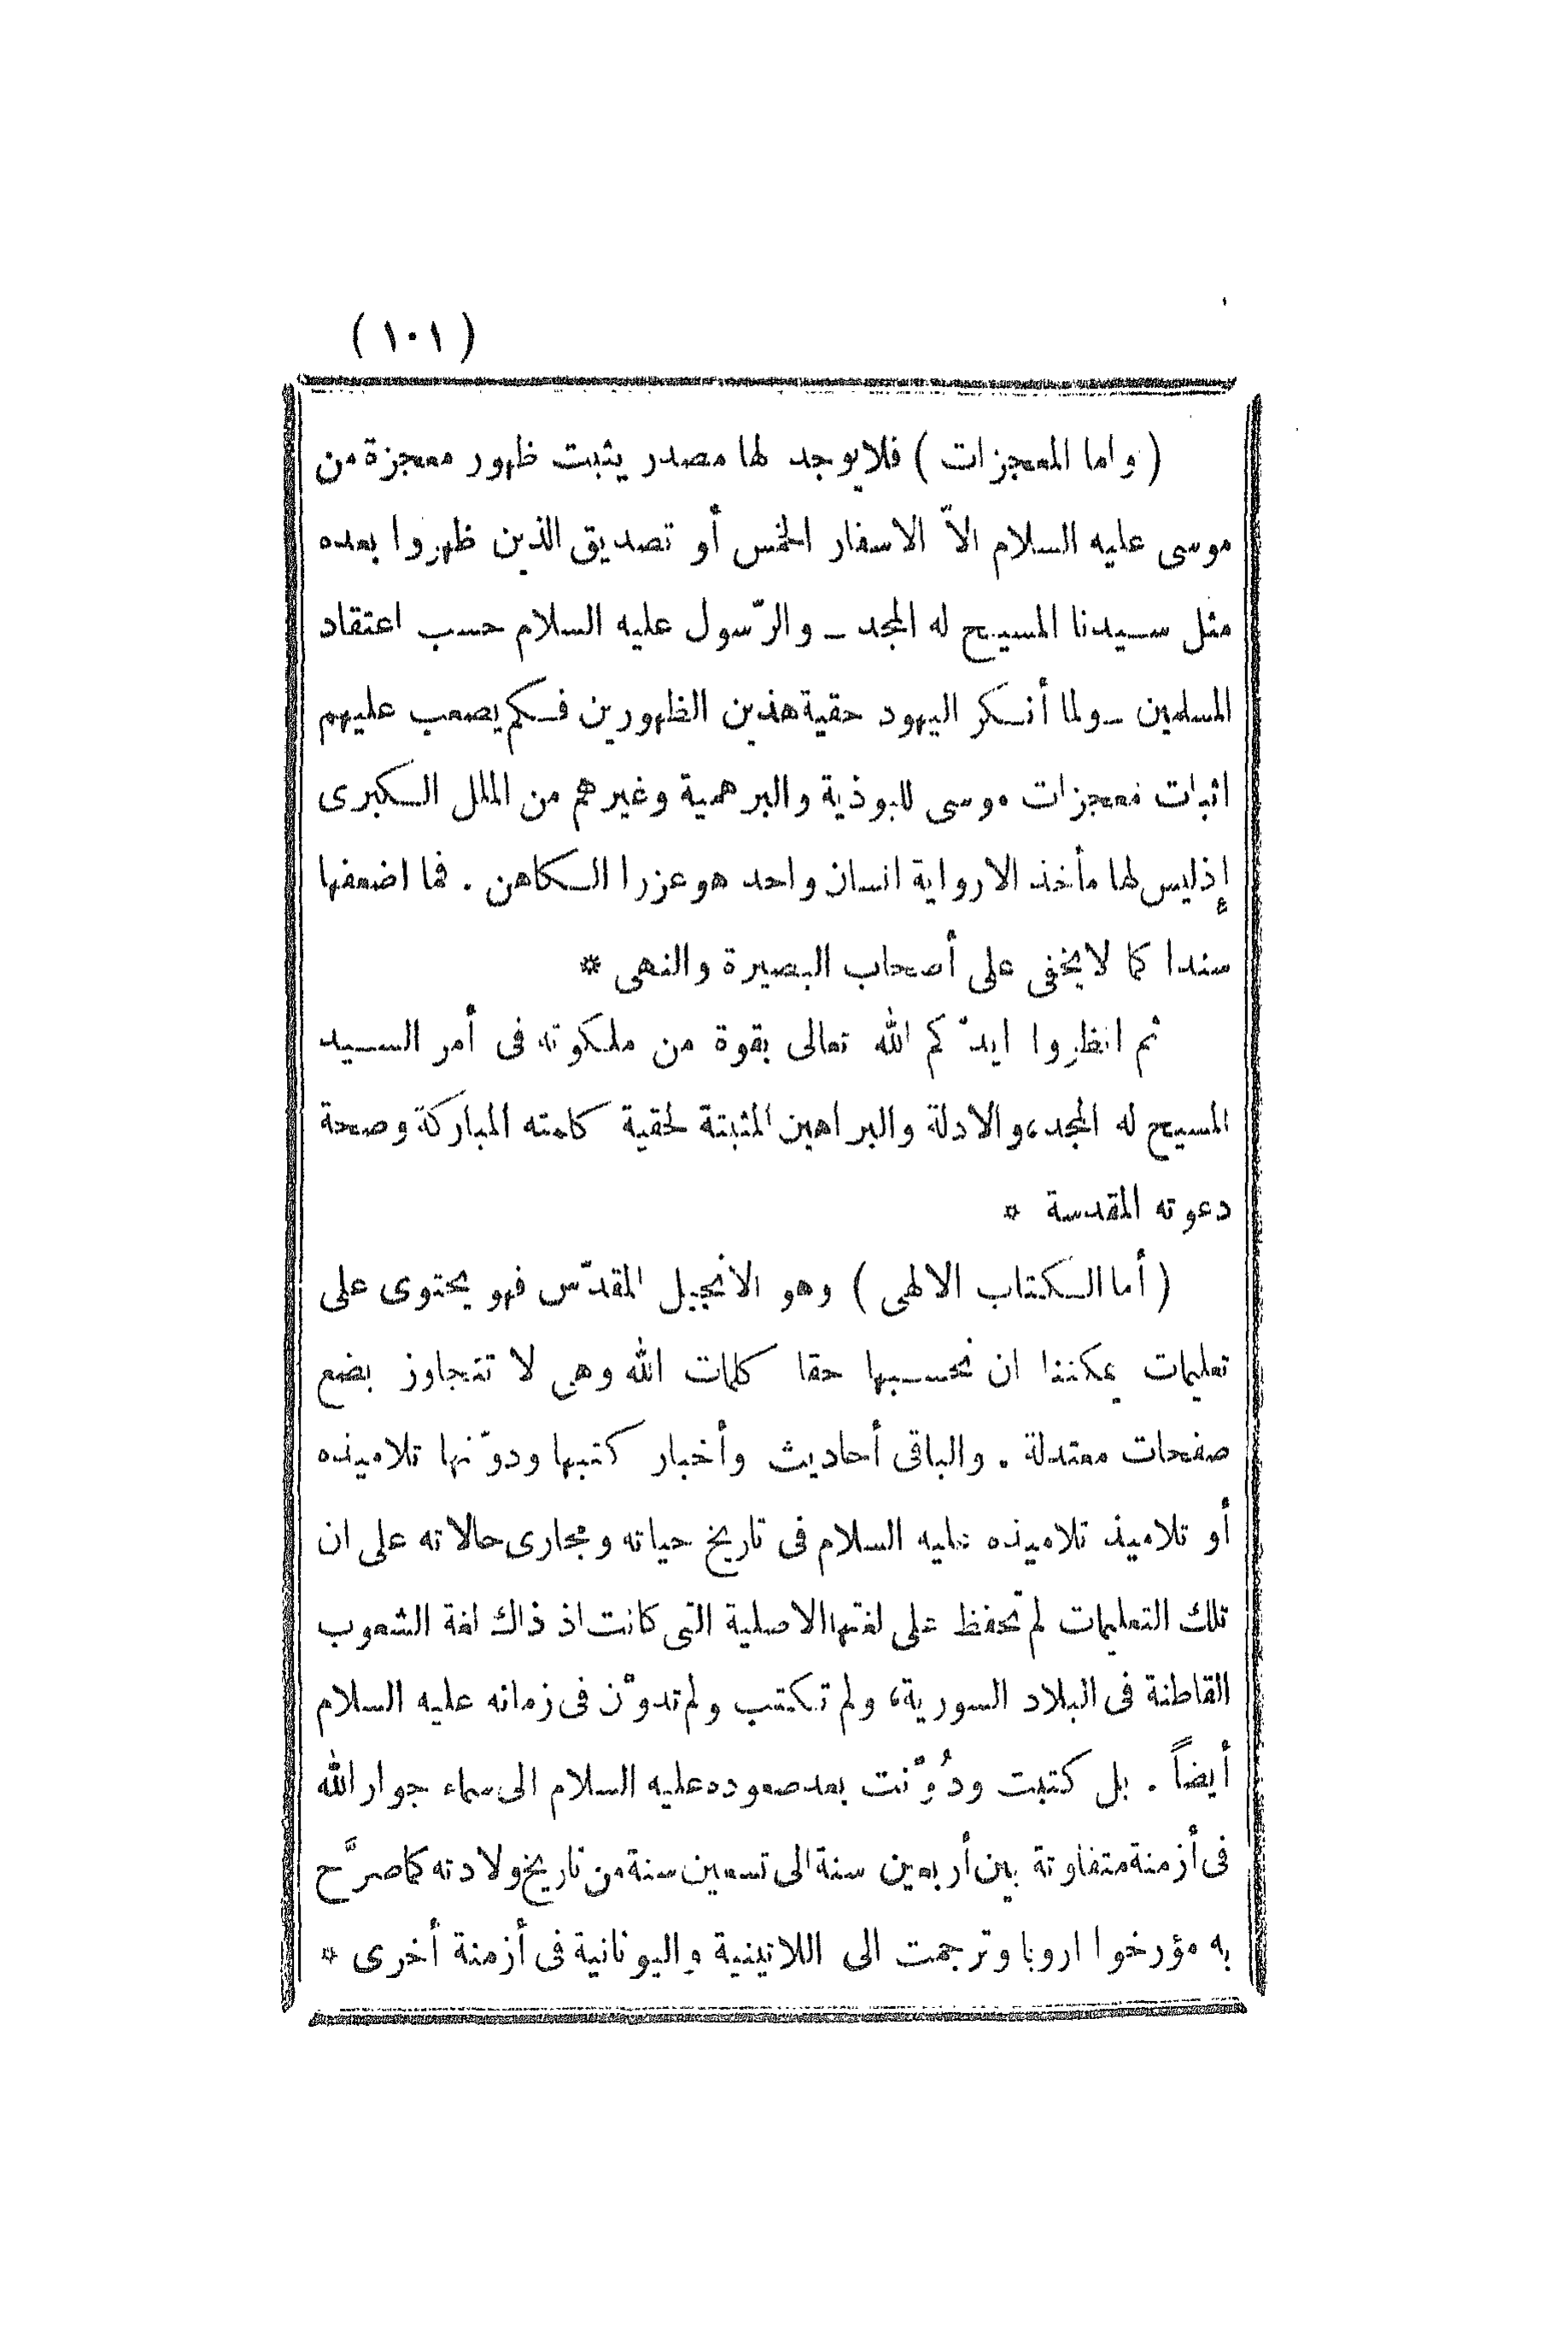 ( ١٠١ )
( واما المعجزات ) فلا يوجد لها مصدر يثبت ظهور معجزة من
موسى عليه السلام الاّ الاسفار الخمس أو تصديق الذين ظهروا بعده
مثل سيدنا المسيح له المجد ـ والرّسول عليه السلام حسب اعتقاد
المسلمين ـ ولما أنكر اليهود حقية هذين الظهورين فكم يصعب عليهم
اثبات معجزات موسى للبوذية والبرهمية وغيرهم من الملل الكبرى
إذ ليس لها مأخذ الا رواية انسان واحد هو عزرا الكاهن . فما اضعفها
سندا كما لا يخفى على أصحاب البصيرة والنهى *
ثم انظروا ايدّكم الله تعالى بقوة من ملكوته فى أمر السيد
المسيح له المجد، والادلة والبراهين المثبتة لحقية كلمته المباركة وصحة
دعوته المقدسة *
( أما الكتاب الالهى ) وهو الانجيل المقدّس فهو يحتوى على
تعليمات يمكننا ان نحسبها حقا كلمات الله وهى لا تتجاوز بضع
صفحات معتدلة . والباقى أحاديث وأخبار كتبها ودوّنها تلاميذه
أو تلاميذ تلاميذه عليه السلام فى تاريخ حياته ومجارى حالاته على ان
تلك التعليمات لم تحفظ على لغتها الاصلية التى كانت اذ ذاك لغة الشعوب
القاطنة فى البلاد السورية، ولم تكتب ولم تدوّن فى زمانه عليه السلام
أيضاً . بل كتبت ودُوِّنت بعد صعوده عليه السلام الى سماء جوار الله
فى أزمنة متفاوتة بين أربعين سنة الى تسعين سنة من تاريخ ولادته كما صرَّح
به مؤرخوا اروبا وترجمت الى اللاتينية واليونانية فى أزمنة أخرى *